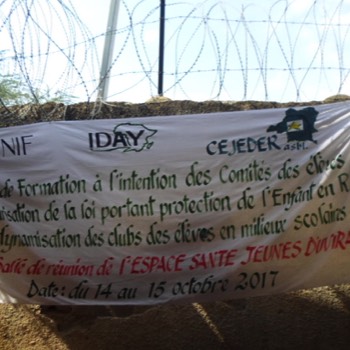 NIF IDAY CEJEDER asbl
de Formation à l'intention des Comités des élèves
isation de la loi portant protection de l'Enfant en R
dynamisation des clubs des élèves en milieux scolaires
Salle de réunion de l'ESPACE SANTE JEUNES D'UVIRA
Date: du 14 au 15 octobre 2017